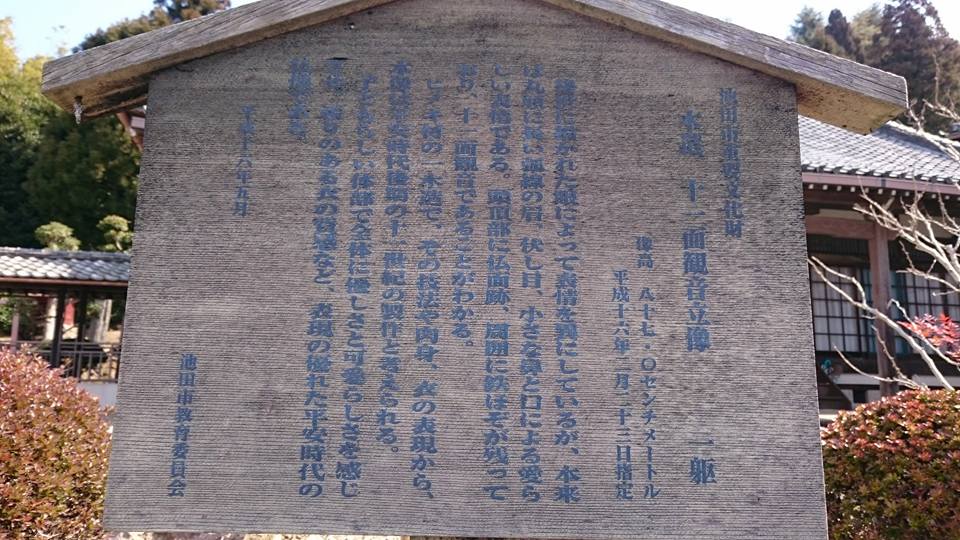 池田市重要文化財
木造 十一面観音立像 一躯
像高 八十七・〇センチメートル
平成十六年 月二十三日指定
後世に描かれた眼によって表情を異にしているが、本来
はれ 長い弧線の眉、伏し目、小さな鼻と口による愛ら
しい表情である。頭頂部に仏面跡、周囲に鉄ほぞが残って
おり、十一面観音であることがわかる。
ヒノキ材の一木造で、その技法や肉身、衣の表現から、
本像は平安時代後期の十一世紀の製作と考えられる。
すらしい体部で全体に優しさと可愛らしさを感じ
のある衣の質感など、表現の優れた平安時代の
である。
平成十六年五月
池田市教育委員会